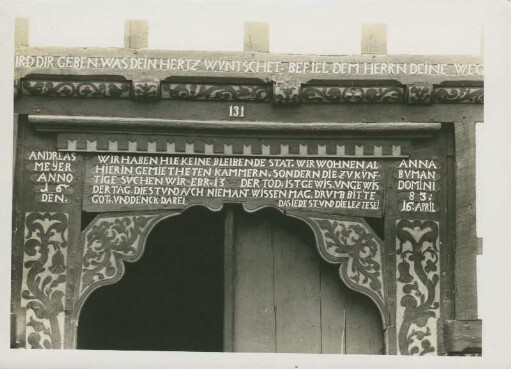 IRD DIR GEBEN WAS DEIN HERTZ WVNTSCHET. BEFIEL DEM HERRN DEINE WEG
131
ANDREAS
MEYER
ANNO
16
DEN.
WIR HABEN HIE KEINE BLEIBENDE STAT. WIR WOHNEN AL
HIER IN GEMIETHETEN KAMMERN. SONDERN DIE ZVKVNF
TIGE SVCHEN WIR. EBR. 13 DER TOD. IST GEWIS. VNGEWIS
DER TAG. DIE STVND AVCH NIEMAN WISSEN MAG. DRVMB BITTE
GOTT. VND DENCK DABEI DAS IEDE STVND DIE LEZTE SEI
ANNA
BVMAN
DOMINI
83:
16. APRIL